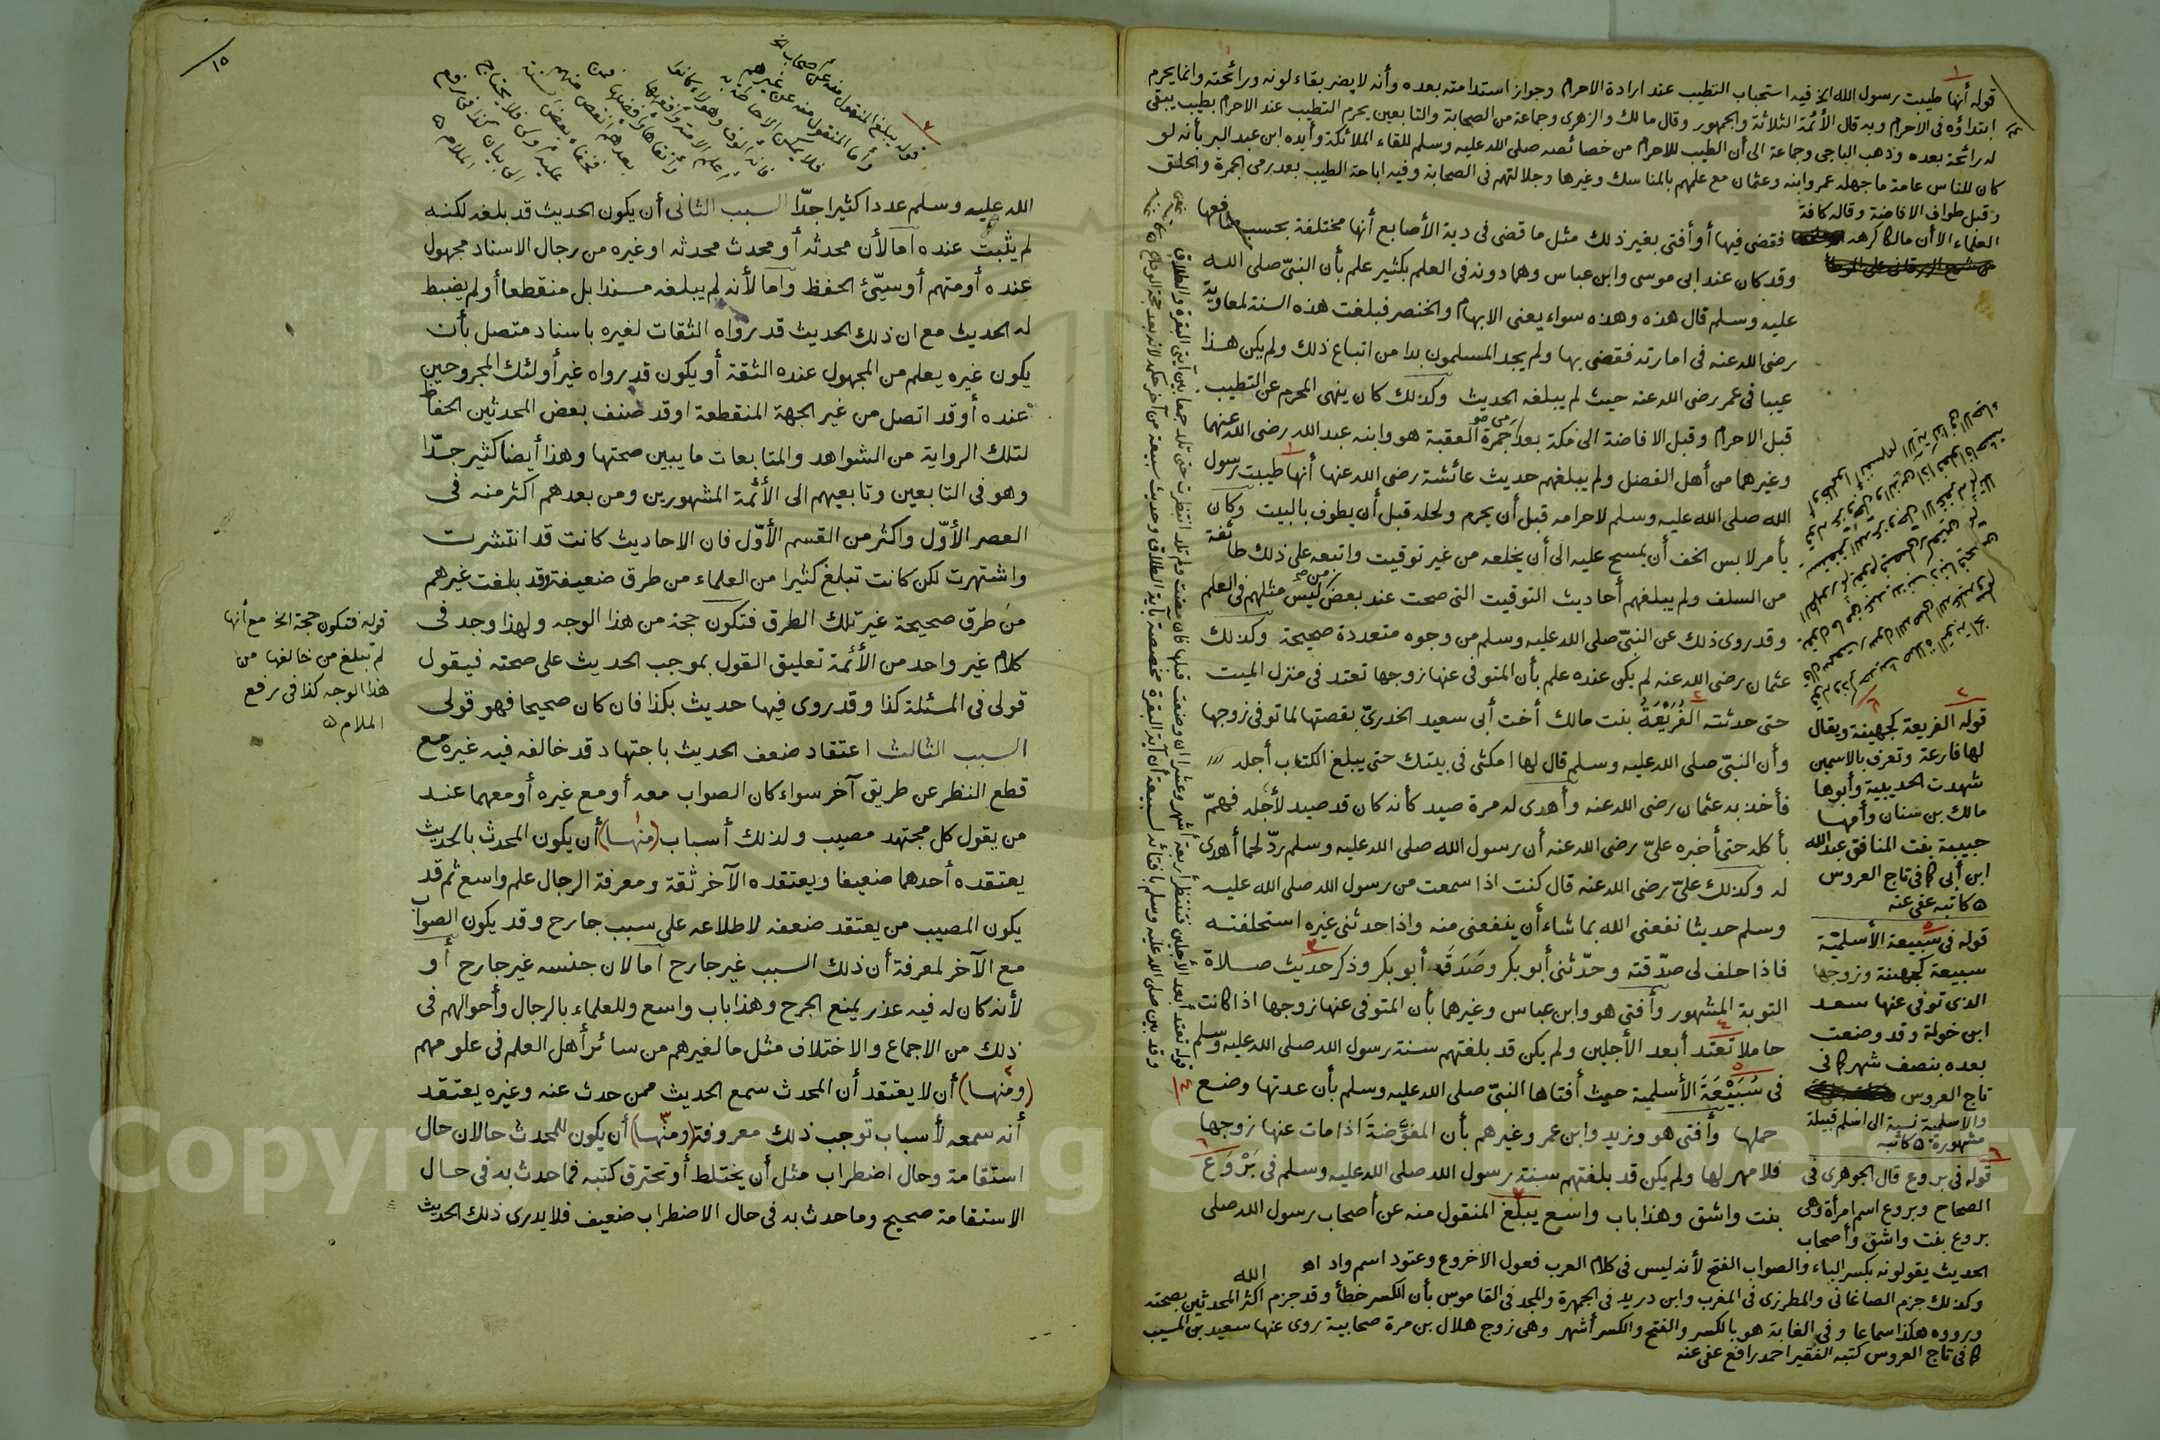 ١٤
قوله أنها طيبت رسول الله الخ فيه استحباب التطيب عند ارادة الاحرام وجواز استدامته بعده وأنه لا يضر بقاء لونه ورائحته وانما يحرم
ابتداؤه فى الاحرام وبه قال الأئمة الثلاثة والجمهور وقال مالك والزهرى وجماعة من الصحابة والتابعين يحرم التطيب عند الاحرام بطيب يبقى
له رائحة بعده وذهب الباجى وجماعة الى أن الطيب للاحرام من خصائصه صلى الله عليه وسلم للقاء الملائكة وأيده ابن عبد البر بأنه لو
كان للناس عامة ما جهله عمر وابنه وعثمان مع علمهم بالمناسك وغيرها وجلالتهم فى الصحابة وفيه اباحة الطيب بعد رمى الجمرة والحلق
وقبل طواف الافاضة وقاله كافة
العلماء الا أن مالكا كرهه
فقضى فيها أو أفتى بغير ذلك مثل ما قضى فى دية الأصابع أنها مختلفة بحسب منافعها
وقد كان عند ابى موسى وابن عباس وهما دونه فى العلم بكثير علم بأن النبىّ صلى الله
عليه وسلم قال هذه وهذه سواء يعنى الابهام والخنصر فبلغت هذه السنة لمعاوية
رضى الله عنه فى امارته فقضى بها ولم يجد المسلمون بدا من اتباع ذلك ولم يكن هذا
عيبا فى عمر رضى الله عنه حيث لم يبلغه الحديث وكذلك كان ينهى المحرم عن التطيب
قبل الاحرام وقبل الافاضة الى مكة بعد رمى جمرة العقبة هو وابنه عبد الله رضى الله عنهما
وغيرهما من أهل الفضل ولم يبلغهم حديث عائشة رضى الله عنها أنها طيبت رسول
الله صلى الله عليه وسلم لاحرامه قبل أن يحرم ولحله قبل أن يطوف بالبيت وكان
يأمر لابس الخف أن يمسح عليه الى أن يخلعه من غير توقيت واتبعه على ذلك طائفة
من السلف ولم يبلغهم أحاديث التوقيت التى صحت عند بعض من ليس مثلهم فى العلم
وقد روى ذلك عن النبىّ صلى الله عليه وسلم من وجوه متعددة صحيحة وكذلك
عثمان رضى الله عنه لم يكن عنده علم بأن المتوفى عنها زوجها تعتد فى منزل الميت
حتى حدثته الفُرَيْعَةُ بنت مالك أخت أبى سعيد الخدرىّ بقصتها لما توفى زوجها
وأن النبىّ صلى الله عليه وسلم قال لها امكثى فى بيتك حتى يبلغ الكتاب أجله
فأخذ به عثمان رضى الله عنه وأهدى له مرة صيد كأنه كان قد صيد لأجله فهمّ
بأكله حتى أخبره علىّ رضى الله عنه أن رسول الله صلى الله عليه وسلم ردّ لحما أهدى
له وكذلك علىّ رضى الله عنه قال كنت اذا سمعت من رسول الله صلى الله عليه
وسلم حديثا نفعنى الله بما شاء أن ينفعنى منه واذا حدثنى غيره استحلفته
فاذا حلف لى صدّقته وحدّثنى أبو بكر وصَدَقَ أبو بكر وذكر حديث صلاة
التوبة المشهور وأفتى هو وابن عباس وغيرهما بأن المتوفى عنها زوجها اذا كانت
حاملا تعتد أبعد الأجلين ولم يكن قد بلغتهم سنة رسول الله صلى الله عليه وسلم
فى سُبَيْعَةَ الأسلمية حيث أفتاها النبىّ صلى الله عليه وسلم بأن عدتها وضع
حملها وأفتى هو وزيد وابن عمر وغيرهم بأن المفوّضة اذا مات عنها زوجها
فلا مهر لها ولم يكن قد بلغتهم سنة رسول الله صلى الله عليه وسلم فى بَرْوَع
بنت واشق وهذا باب واسع يبلغ المنقول منه عن أصحاب رسول الله صلى
الله
قوله الفريعة كجهينة ويقال
لها فارعة وتعرف بالاسمين
شهدت الحديبية وأبوها
مالك بن سنان وأمها
حبيبة بنت المنافق عبد الله
ابن أبى كما فى تاج العروس
ه كاتبه عفى عنه
قوله فى سبيعة الأسلميّة
سبيعة كجهينة وزوجها
الذى توفى عنها سعد
ابن خولة وقد وضعت
بعده بنصف شهر كما فى
تاج العروس
والاسلمية نسبة الى اسلم قبيلة
مشهورة ه كاتبه
قوله فى بروع قال الجوهرى فى
الصحاح وبروع اسم امرأة وهى
بروع بنت واشق وأصحاب
الحديث يقولونه بكسر الباء والصواب الفتح لأنه ليس فى كلام العرب فعول الا خروع وعتود اسم واد اه
وكذلك جزم الصاغانى والمطرزى فى المغرب وابن دريد فى الجمهرة والمجد فى القاموس بأن الكسر خطأ وقد جزم أكثر المحدثين بصحته
ورووه هكذا سماعا وفى الغابة هو بالكسر والفتح والكسر أشهر وهى زوج هلال بن مرة صحابية روى عنها سعيد بن المسيب
كما فى تاج العروس كتبه الفقير احمد رافع عفى عنه
١٥
قوله يبلغ المنقول منه عن أصحاب الخ
وأما المنقول منه عن غيرهم
فلا يمكن الاحاطة به
الله عليه وسلم عددا كثيرا جدّا السبب الثانى أن يكون الحديث قد بلغه لكنه
لم يثبت عنده اما لأن محدثه أو محدث محدثه او غيره من رجال الاسناد مجهول
عنده أو متهم أو سيّئ الحفظ واما لأنه لم يبلغه مسندا بل منقطعا أو لم يضبط
له الحديث مع ان ذلك الحديث قد رواه الثقات لغيره باسناد متصل بأن
يكون غيره يعلم من المجهول عنده الثقة أو يكون قد رواه غير أولئك المجروحين
عنده أو قد اتصل من غير الجهة المنقطعة او قد صنف بعض المحدثين الحفاظ
لتلك الرواية من الشواهد والمتابعات ما يبين صحتها وهذا أيضا كثير جدّا
وهو فى التابعين وتابعيهم الى الأئمة المشهورين ومن بعدهم اكثر منه فى
العصر الأوّل واكثر من القسم الأوّل فان الاحاديث كانت قد انتشرت
واشتهرت لكن كانت تبلغ كثيرا من العلماء من طرق ضعيفة وقد بلغت غيرهم
من طرق صحيحة غير تلك الطرق فتكون حجة من هذا الوجه ولهذا وجد فى
كلام غير واحد من الأئمة تعليق القول بموجب الحديث على صحته فيقول
قولى فى المسئلة كذا وقد روى فيها حديث بكذا فان كان صحيحا فهو قولى
السبب الثالث اعتقاد ضعف الحديث باجتهاد قد خالفه فيه غيره مع
قطع النظر عن طريق آخر سواء كان الصواب معه أو مع غيره أو معهما عند
من يقول كل مجتهد مصيب ولذلك أسباب (منها) أن يكون المحدث بالحديث
يعتقده أحدهما ضعيفا ويعتقده الآخر ثقة ومعرفة الرجال علم واسع ثم قد
يكون المصيب من يعتقد ضعفه لاطلاعه على سبب جارح وقد يكون الصواب
مع الآخر لمعرفة أن ذلك السبب غير جارح اما لان جنسه غير جارح أو
لأنه كان له فيه عذر يمنع الجرح وهذا باب واسع وللعلماء بالرجال وأحوالهم فى
ذلك من الاجماع والاختلاف مثل ما لغيرهم من سائر أهل العلم فى علومهم
(ومنها) أن لا يعتقد أن المحدث سمع الحديث ممن حدث عنه وغيره يعتقد
أنه سمعه لأسباب توجب ذلك معروفة (ومنها) أن يكون للمحدث حالان حال
استقامة وحال اضطراب مثل أن يختلط أو تحترق كتبه فما حدث به فى حال
الاستقامة صحيح وما حدث به فى حال الاضطراب ضعيف فلا يدرى ذلك الحديث
قوله فتكون حجة الخ مع أنها
لم تبلغ من خالفها من
هذا الوجه كذا فى رفع
الملام ه
Copyright © King Saud University